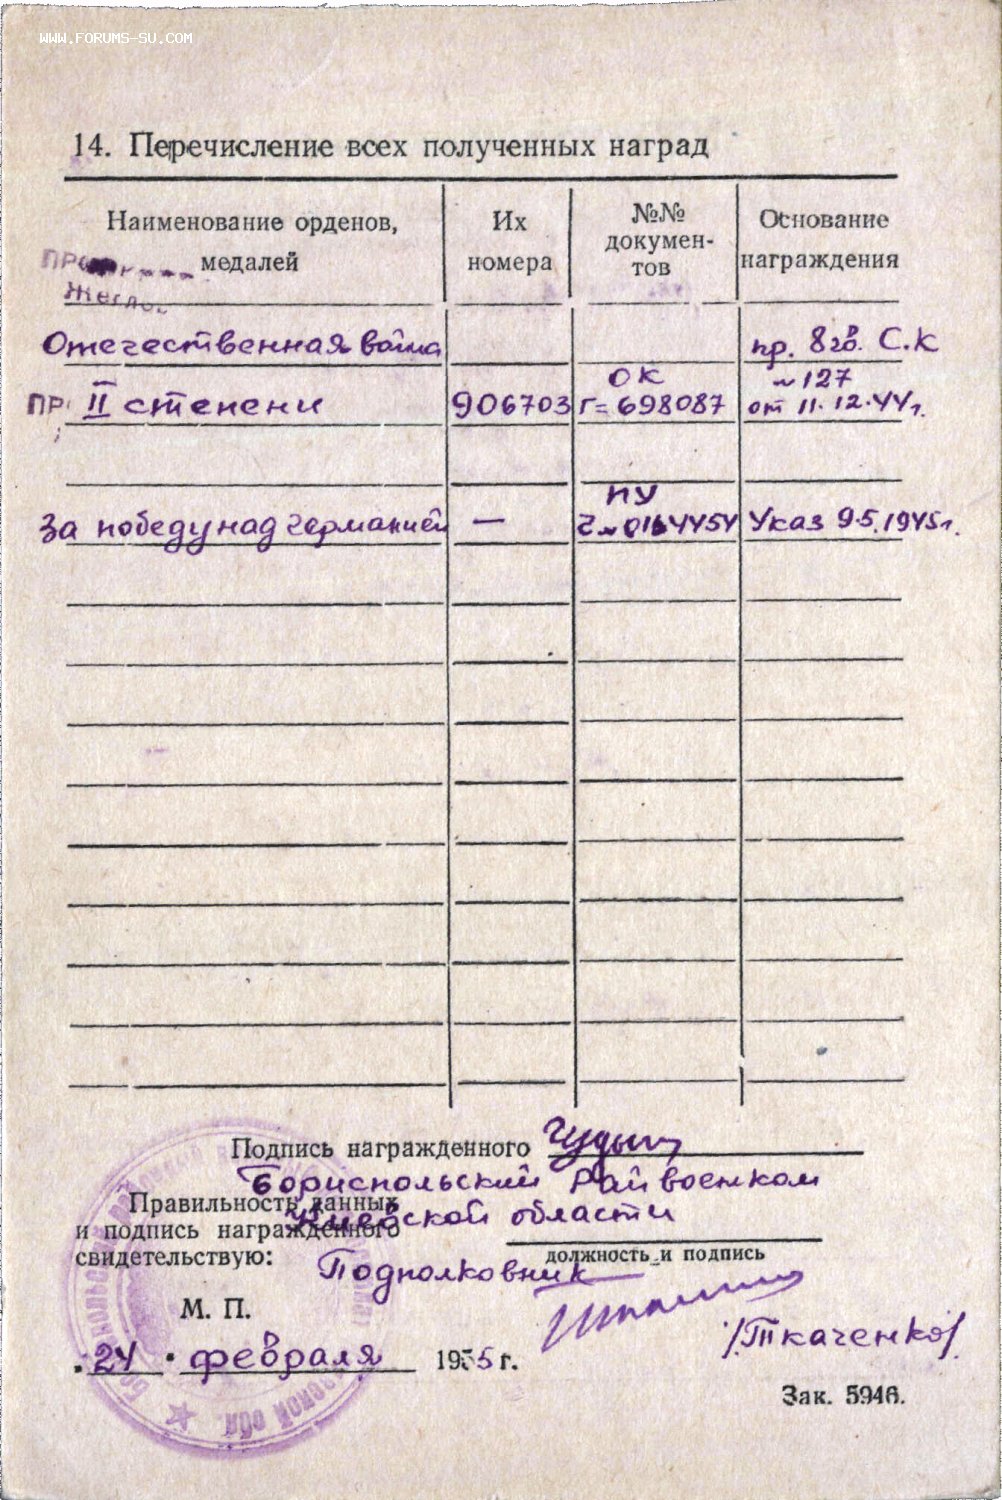 WWW.FORUMS-SU.COM
14. Перечисление всех полученных наград
Наименование орденов, медалей
Их номера
№№ докумен-
тов
Основание награждения
Отечественная война
II степени
906703
ОК
Г= 698087
пр. 8 гв. С.К
№127
от 11.12.44г.
За победу над Германией
—
ПУ
Указ 9.5.1945г.
Подпись награжденного
Бориспольский Райвоенком
Правильность данных
Киевской области
и подпись награжденного
свидетельствую:
должность и подпись
Подполковник
М. П.
/Ткаченко/
24 февраля 1955 г.
Зак. 5946.